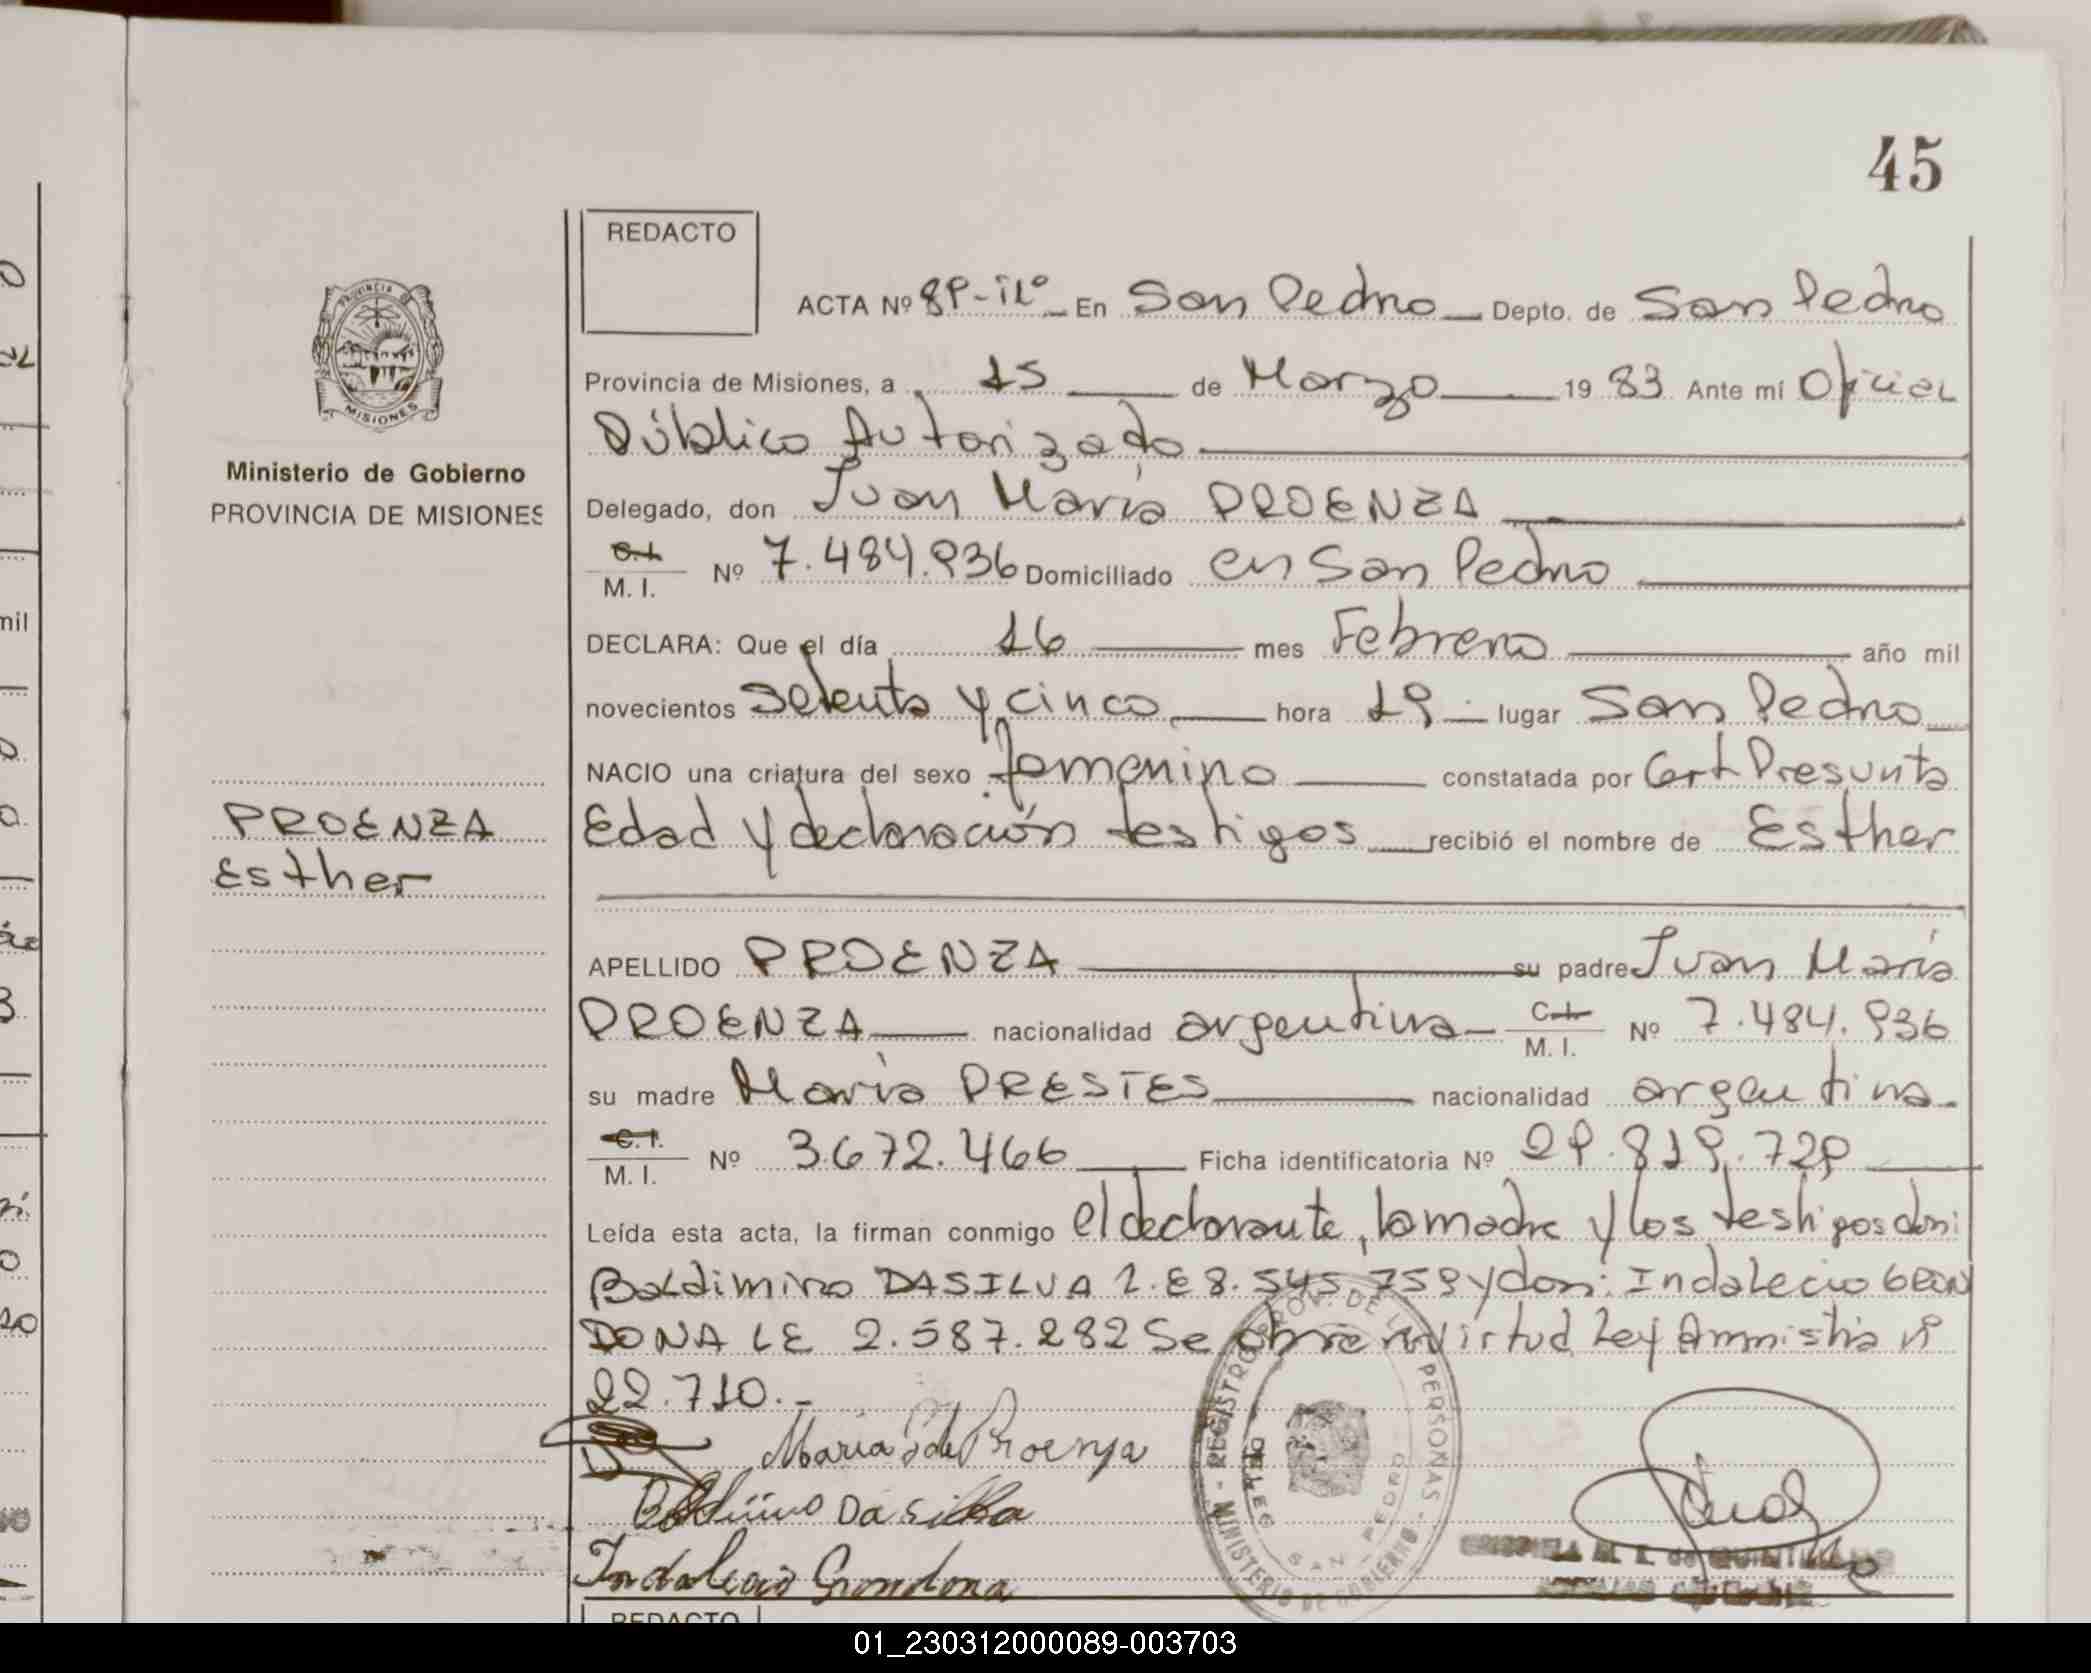 45
REDACTO
ACTA Nº 89-Tº En San Pedro Depto. de San Pedro
Provincia de Misiones, a 15 de Marzo 1983 Ante mí Oficial
Público Autorizado
Delegado, don Juan María PROENZA
C.I. M. I. Nº 7.484.936 Domiciliado en San Pedro
DECLARA: Que el día 16 mes Febrero año mil
novecientos setenta y cinco hora 19 lugar San Pedro
NACIO una criatura del sexo femenino constatada por Cert Presunta
Edad y declaración testigos recibió el nombre de Esther
APELLIDO PROENZA su padre Juan María
PROENZA nacionalidad argentina C.I. M. I. Nº 7.484.936
su madre María PRESTES nacionalidad argentina
C.I. M. I. Nº 3.672.466 Ficha identificatoria Nº 29.819.729
Leída esta acta, la firman conmigo el declarante, la madre y los testigos don:
Baldimiro DASILVA L.E 8.545.759 y don: Indalecio GRON
DONA LE 2.587.282 Se abre virtud Ley Amnistia nº
22.710.-
María P de Proenza
Da Silva
Indalecio Grondona
PROVINCIA DE
MISIONES
Ministerio de Gobierno
PROVINCIA DE MISIONES
PROENZA
Esther
MINISTERIO DE GOBIERNO - REGISTRO PROV. DE LAS PERSONAS
SAN PEDRO
mil
REDACTO
01_230312000089-003703